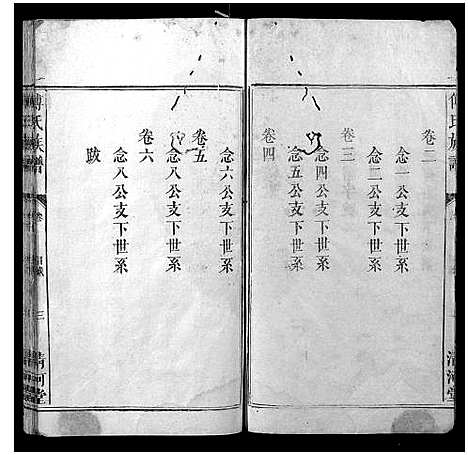 傅氏族譜
清河堂
卷二
念一公支下世系
念二公支下世系
卷三
念四公支下世系
念五公支下世系
卷四
念六公支下世系
卷五
念八公支下世系
卷六
念八公支下世系
跋
傅氏族譜
卷
三
清河堂